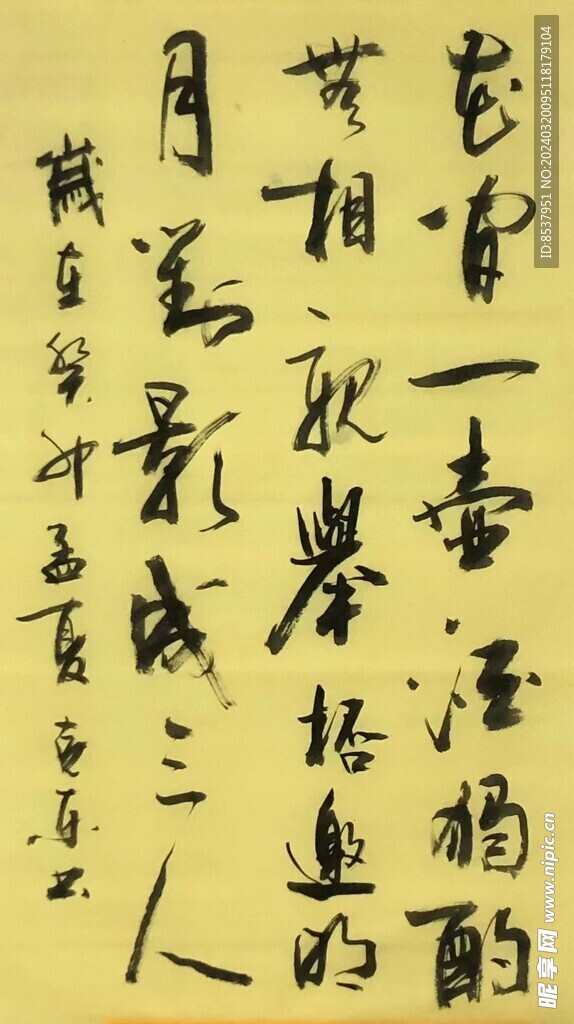 花間一壺酒獨酌
無相親舉杯邀明
月對影成三人
歲在癸卯孟夏克東書
ID:8537951 NO:20240320095118179104
昵享网 www.nipic.cn